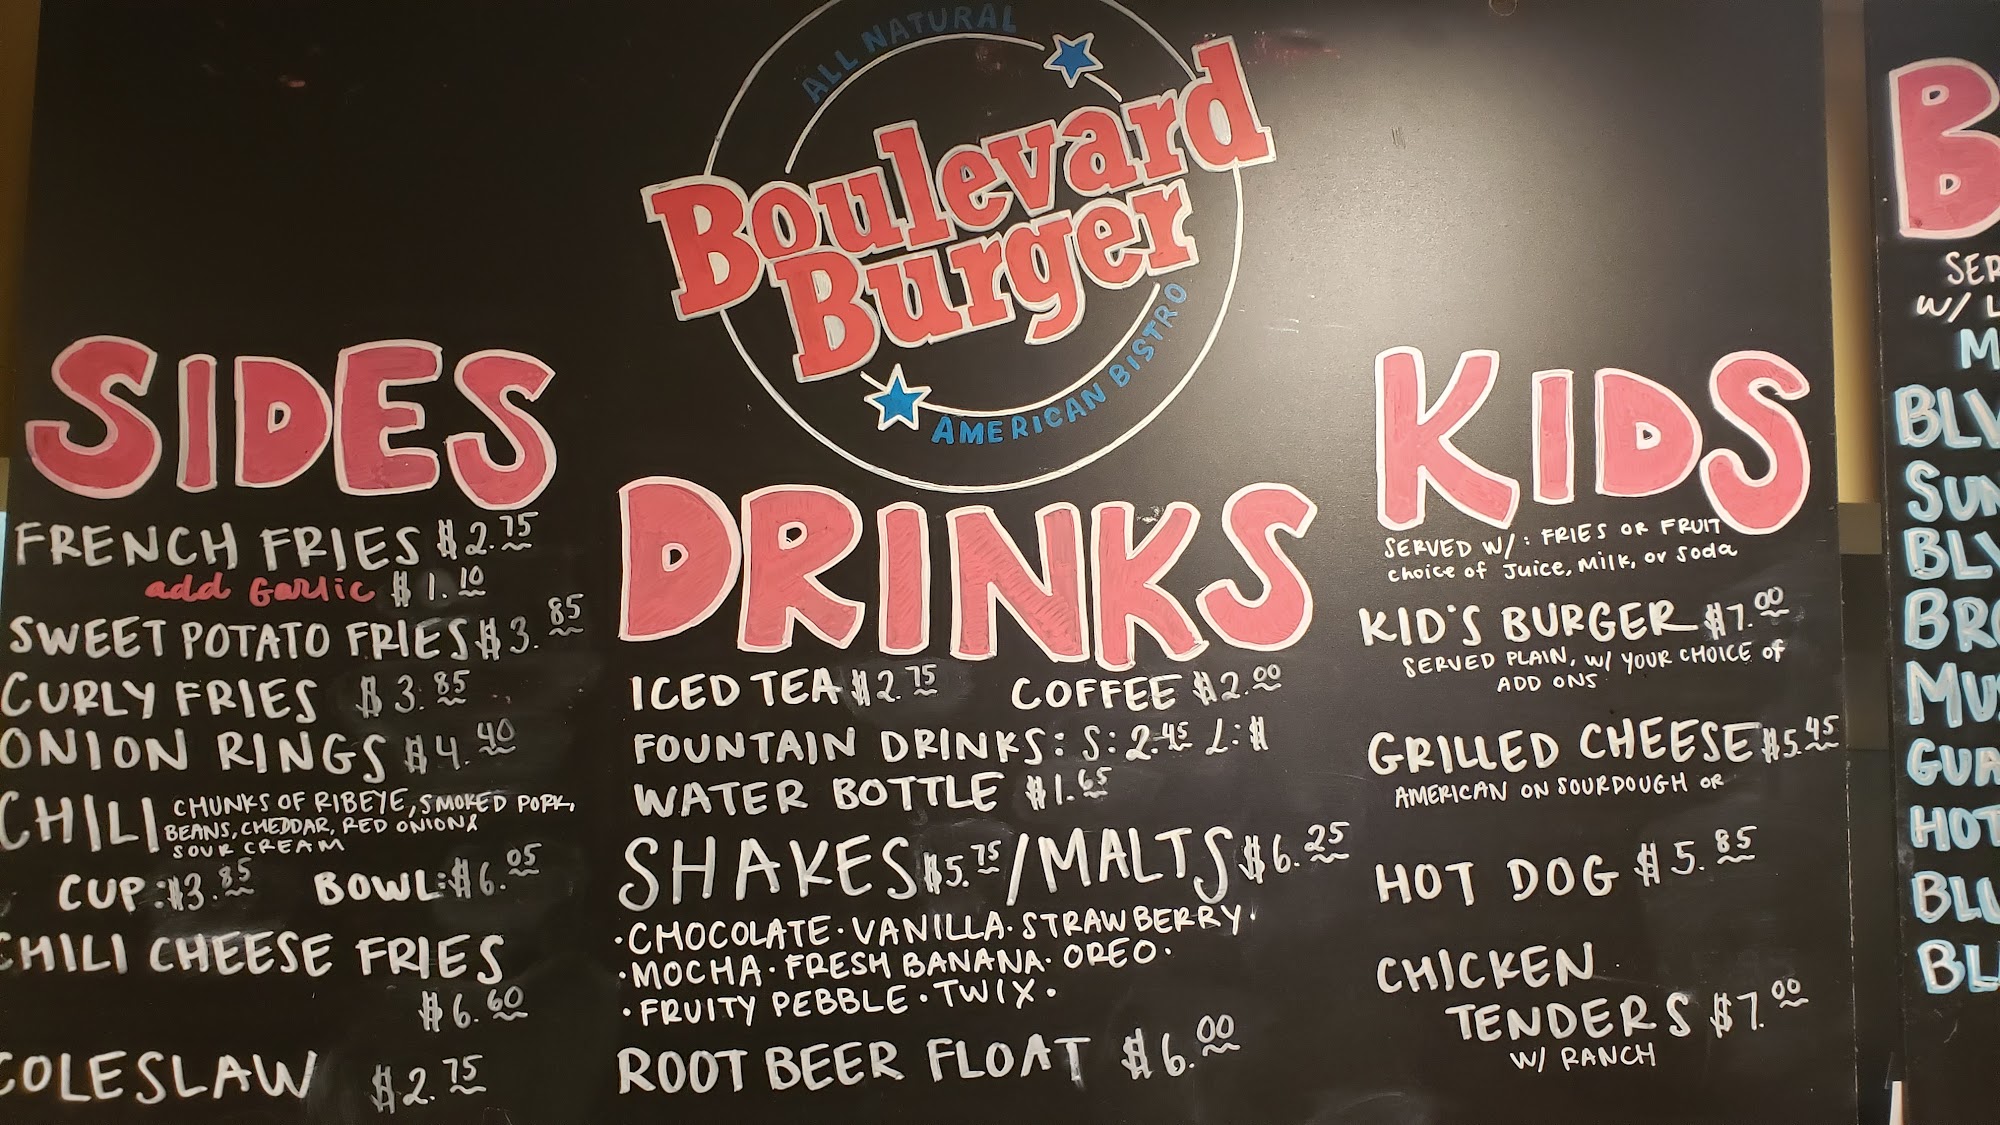 ALL NATURAL
Boulevard
Burger
AMERICAN BISTRO
SIDES
FRENCH FRIES $2.75
add Garlic $1.10
SWEET POTATO FRIES $3.85
CURLY FRIES $3.85
ONION RINGS $4.40
CHILI CHUNKS OF RIBEYE, SMOKED PORK,
BEANS, CHEDDAR, RED ONION &
SOUR CREAM
CUP: $3.85 BOWL: $6.05
CHILI CHEESE FRIES
$6.60
COLESLAW $2.75
DRINKS
ICED TEA $2.75 COFFEE $2.00
FOUNTAIN DRINKS: S: 2.45 L: $
WATER BOTTLE $1.65
SHAKES $5.75/MALTS $6.25
·CHOCOLATE·VANILLA·STRAWBERRY·
·MOCHA·FRESH BANANA·OREO·
·FRUITY PEBBLE·TWIX·
ROOT BEER FLOAT $6.00
KIDS
SERVED W/: FRIES OR FRUIT
choice of Juice, Milk, or Soda
KID'S BURGER $7.00
SERVED PLAIN, W/ YOUR CHOICE of
ADD ONS
GRILLED CHEESE $5.45
AMERICAN ON SOURDOUGH OR
HOT DOG $5.85
CHICKEN
TENDERS $7.00
W/ RANCH
B
SER
W/ L
M
BLV
SUN
BLV
BRO
MUS
GUA
HOT
BLU
BL